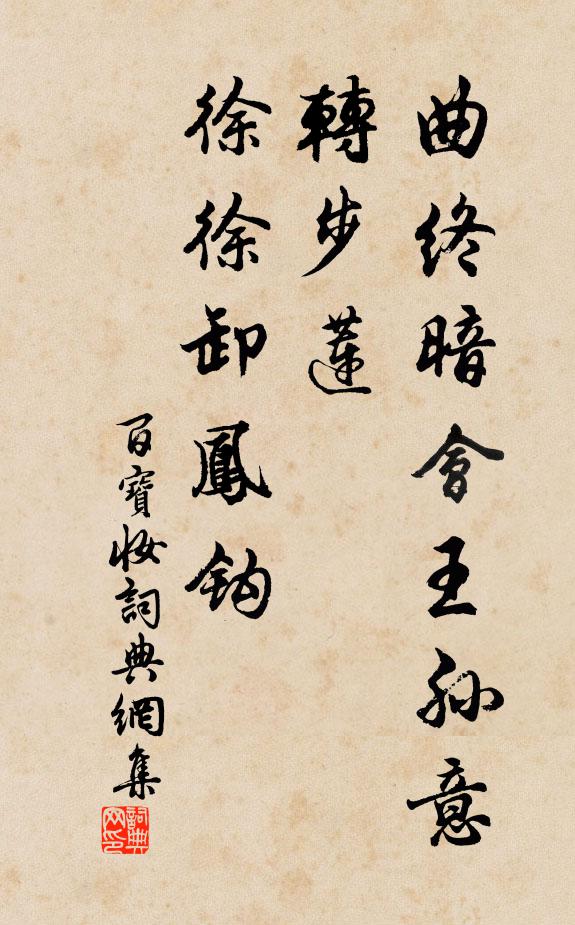 曲终暗會王孙意
轉步蓮
徐徐卸鳳鈎
百寶妝詞典網集
詞典网印